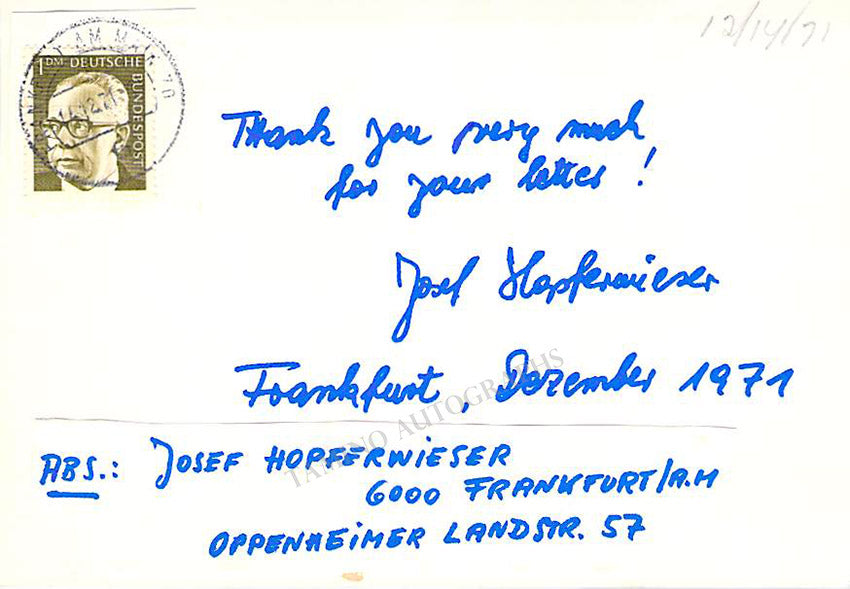 12/14/71
1 DM DEUTSCHE
BUNDESPOST
AM MAIN 70
Thank you very much
for your letter!
Josef Hopferwieser
Frankfurt, Dezember 1971
TAMINO AUTOGRAPHS
ABS.: JOSEF HOPFERWIESER
6000 FRANKFURT/A.M
OPPENHEIMER LANDSTR. 57